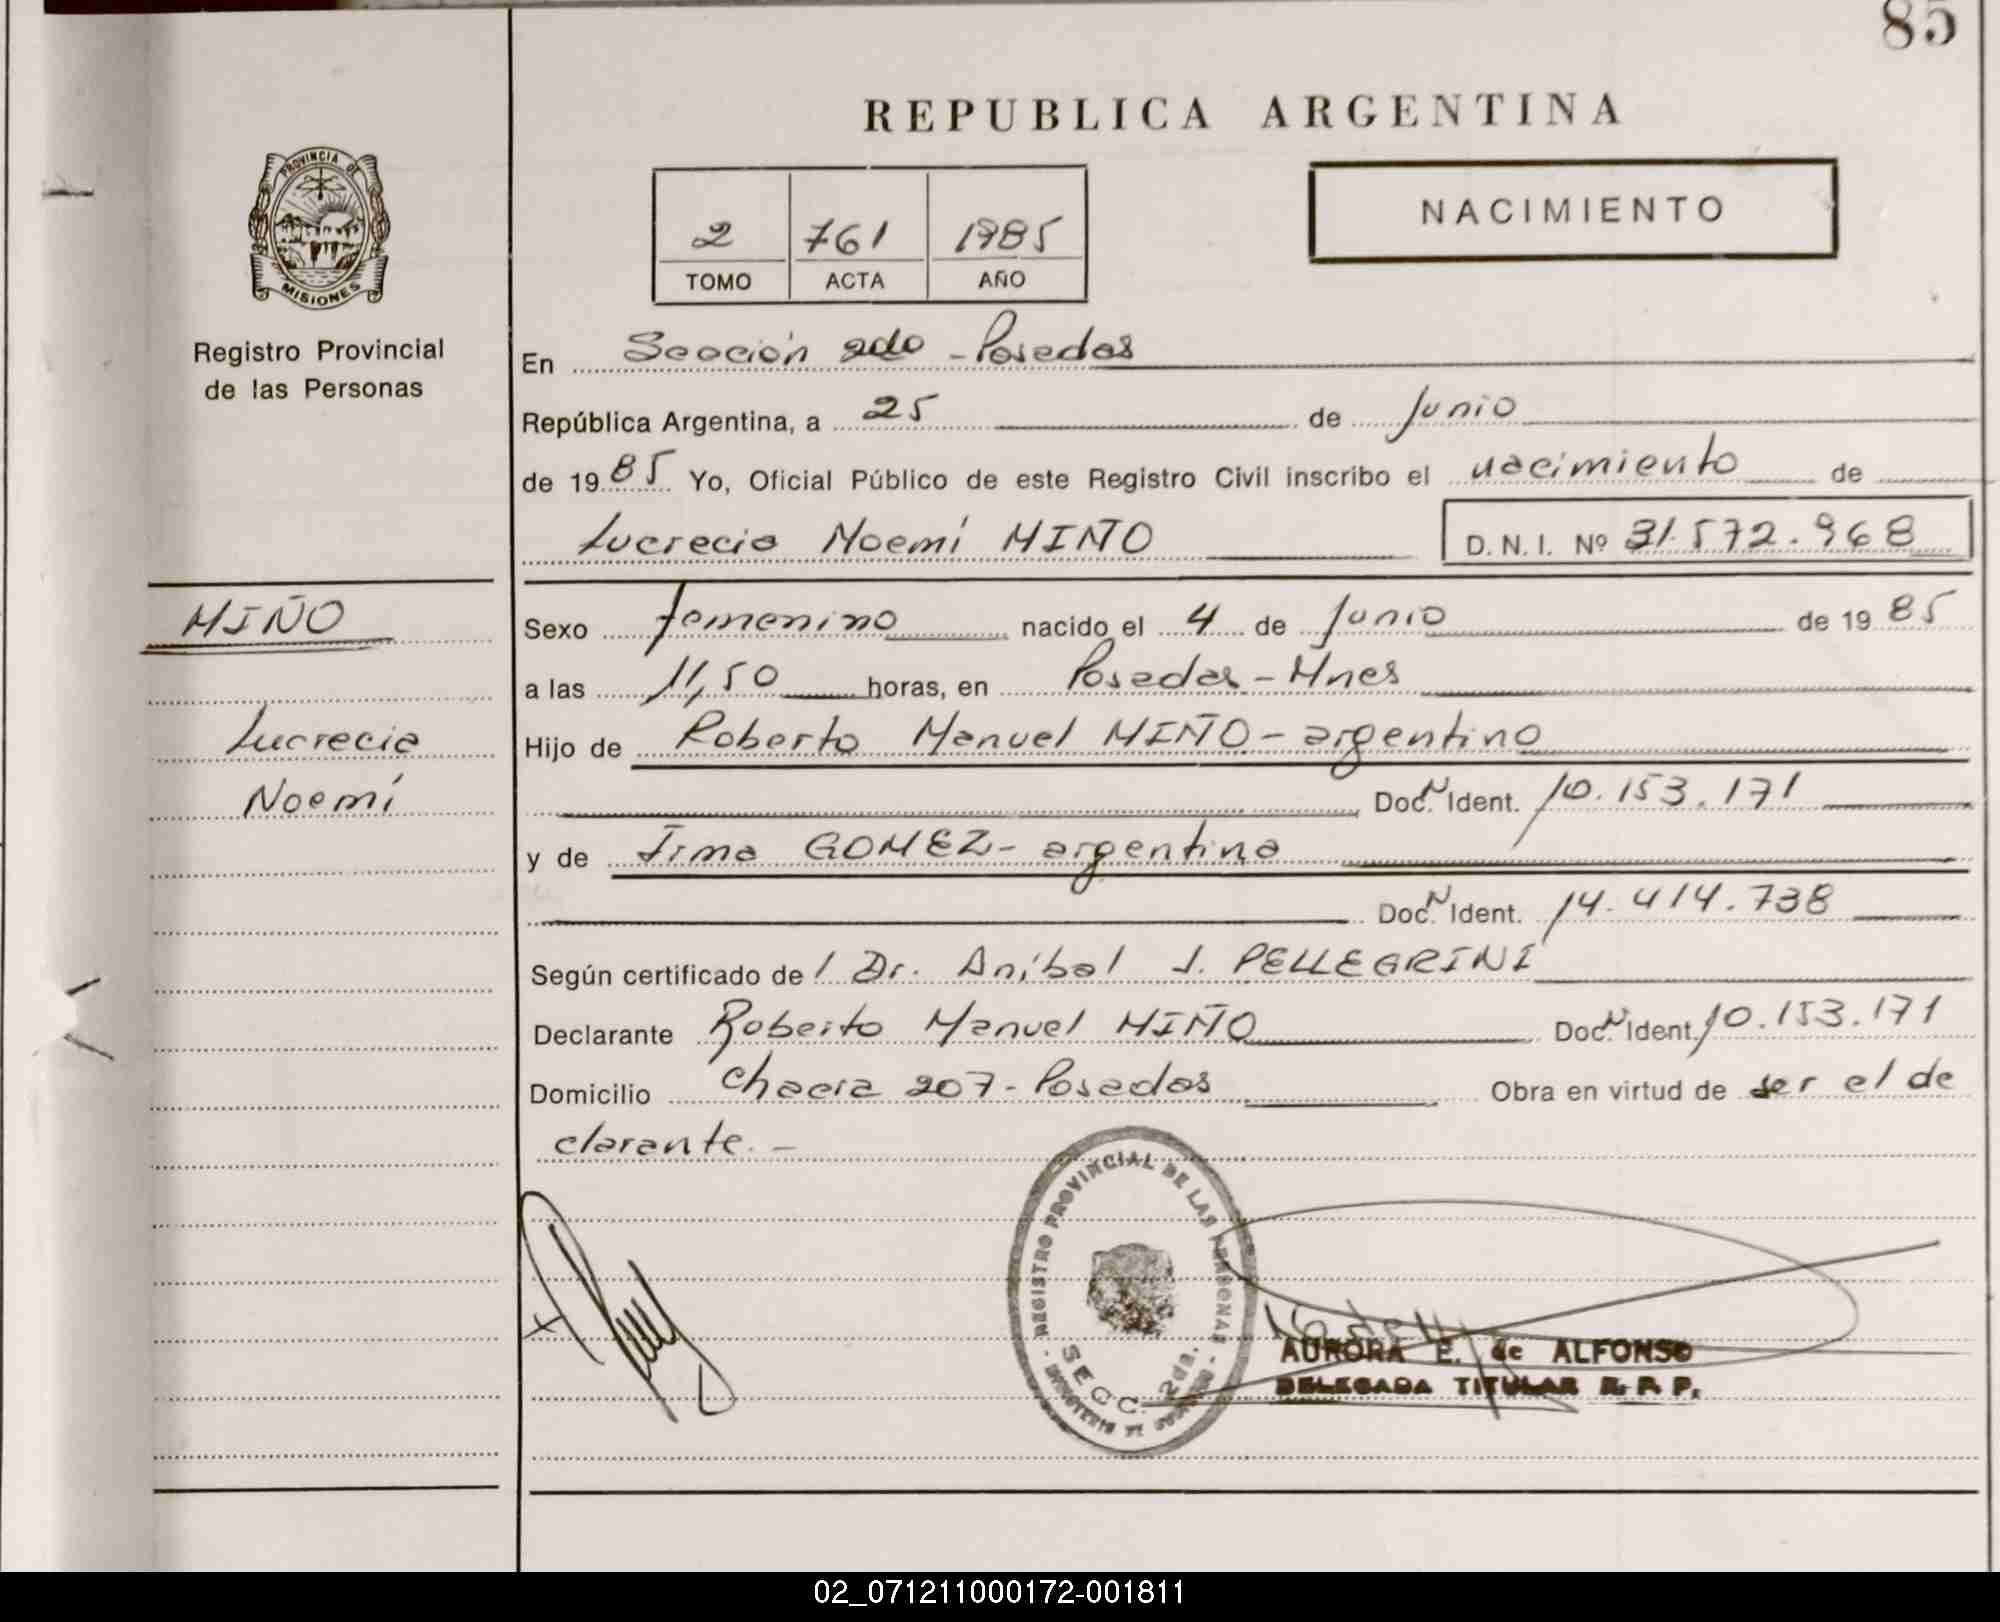 85
REPUBLICA ARGENTINA
PROVINCIA DE
MISIONES
Registro Provincial
de las Personas
2 761 1985
TOMO ACTA AÑO
NACIMIENTO
En Sección 2da - Posadas
República Argentina, a 25 de Junio
de 1985 Yo, Oficial Público de este Registro Civil inscribo el nacimiento de
Lucrecia Noemí MIÑO D. N. I. Nº 31.572.968
MIÑO
Lucrecia
Noemí
Sexo femenino nacido el 4 de Junio de 1985
a las 11,50 horas, en Posadas - Mnes
Hijo de Roberto Manuel MIÑO - argentino
Doc. N Ident. 10.153.171
y de Irma GOMEZ - argentina
Doc. N Ident. 14.414.738
Según certificado de / Dr. Aníbal J. PELLEGRINI
Declarante Roberto Manuel MIÑO Doc. N Ident. 10.153.171
Domicilio Chacra 207 - Posadas Obra en virtud de ser el de
clarante. -
REGISTRO PROVINCIAL DE LAS PERSONAS
SECC. 2da.
AURORA E. de ALFONSO
DELEGADA TITULAR R. P. P.
02_071211000172-001811